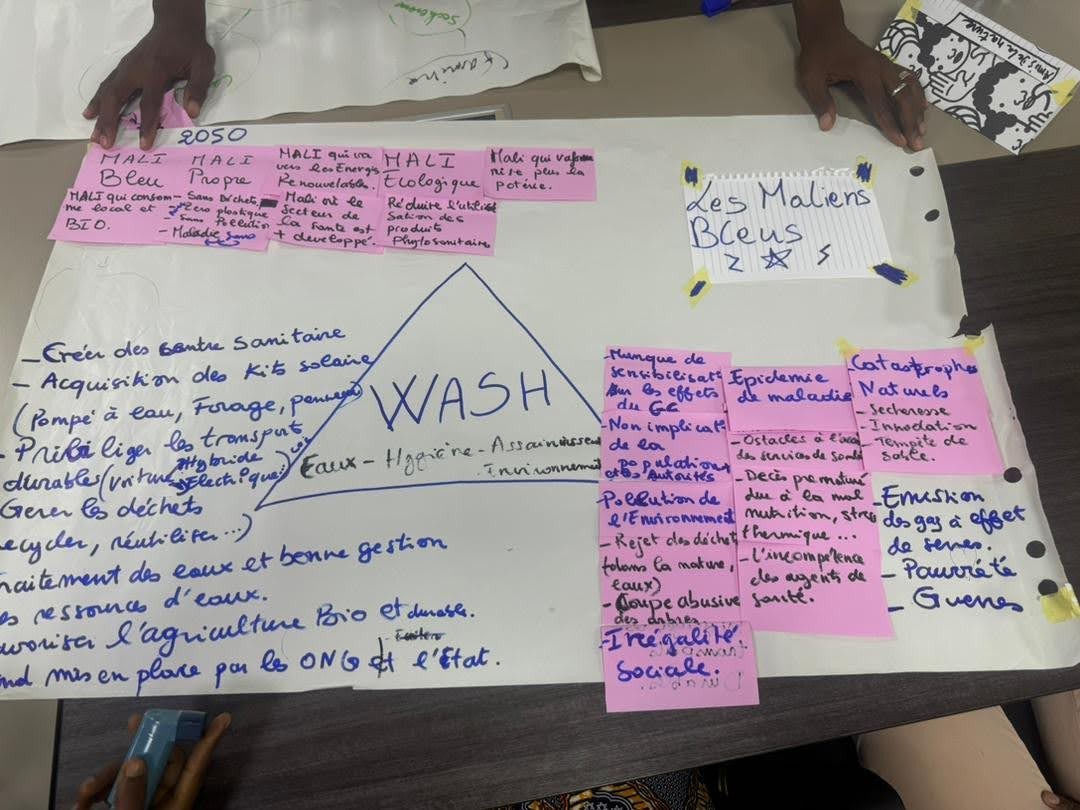 Famine
Amis de la nature
2050
MALI
Bleu
MALI
Propre
MALI qui va
vers les Energies
Renouvelable.
MALI
Ecologique
Mali qui
plus la
MALI qui consom-
me local et
BIO.
- Sans Déchets
- Zero plastique
- Sans Pollution
- Maladie
Mali où le
Secteur de
la Santé est
+ développé.
Réduire l'utili
sation des
produits
Phytosanitaires
Les Maliens
Bleus
WASH
Eaux - Hygiène - Assainissement
. Environnement
- Créer des centre sanitaire
- Acquisition des Kits solaire
(Pompé à eau, Forage, panneau
les transport
durables (voiture Hybride
Electrique)
Gerer les déchets
ecycler, réutiliser...)
raitement des eaux et bonne gestion
es ressources d'eaux.
avoriser l'agriculture Bio et durable.
nd mis en place par les ONG et l'État.
- Manque de
sensibilisat
sur les effets
du GC
- Non implicat
de la
population
et les Autorités
- Pollution de
l'Environnement
- Rejet des déchet
(dans la nature,
eaux)
- Coupe abusive
des arbres
- Inégalité
Sociale.
Epidemie
de maladie
- Obstacles à l'accè
des services de santé
- Decès prematuré
du à la mal
nutrition, stress
thermique...
- L'incompétence
des agents de
santé.
Catastrophes
Naturels
- Secheresse
- Innodation
- Tempête de
sable.
- Emission
des gaz à effet
de serres.
- Pauvrété
- Guerres